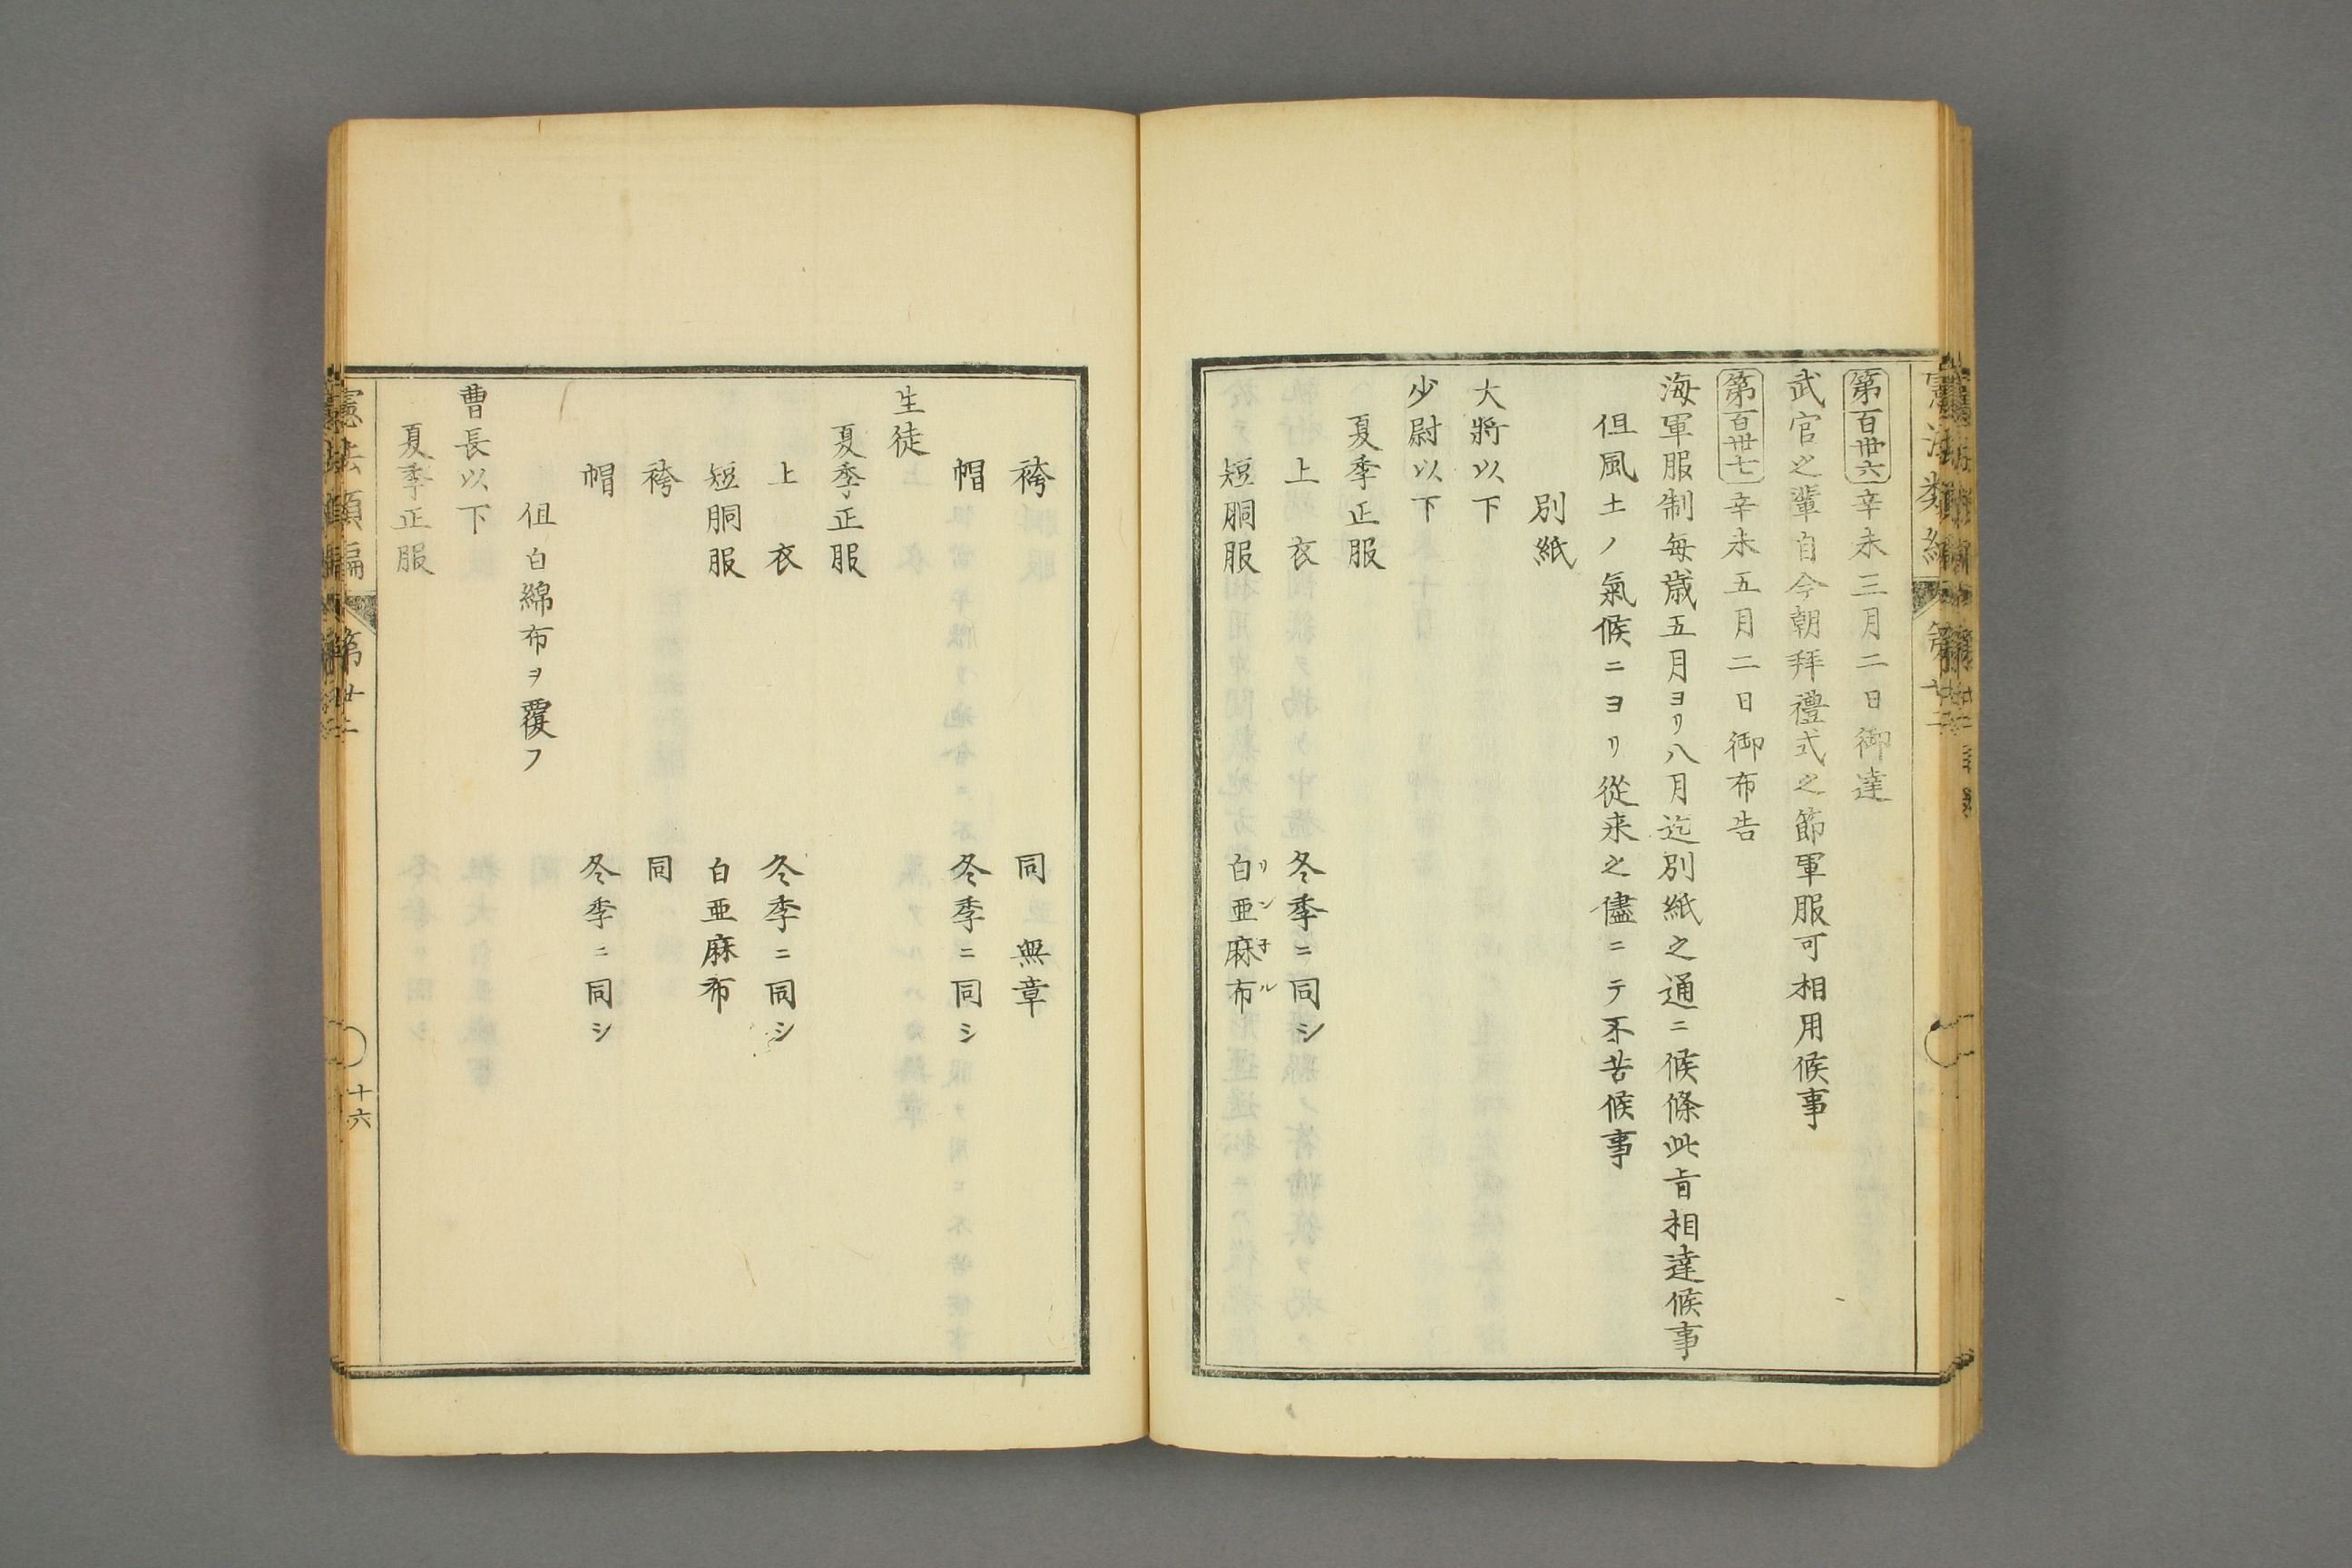 第百卅六 辛未三月二日御達
武官之輩自今朝拜禮式之節軍服可相用候事
第百卅七 辛未五月二日御布告
海軍服制每歳五月ヨリ八月迄別紙之通ニ候條此旨相達候事
但風土ノ氣候ニヨリ從来之儘ニテ不苦候事
別紙
大將以下
少尉以下
夏季正服
上衣 冬季ニ同シ
短胴服 白亜麻布 リンネル
袴 同 無章
帽 冬季ニ同シ
生徒
夏季正服
上衣 冬季ニ同シ
短胴服 白亜麻布
袴 同
帽 冬季ニ同シ
但白綿布ヲ覆フ
曹長以下
夏季正服
憲法類編 第廿二
十六